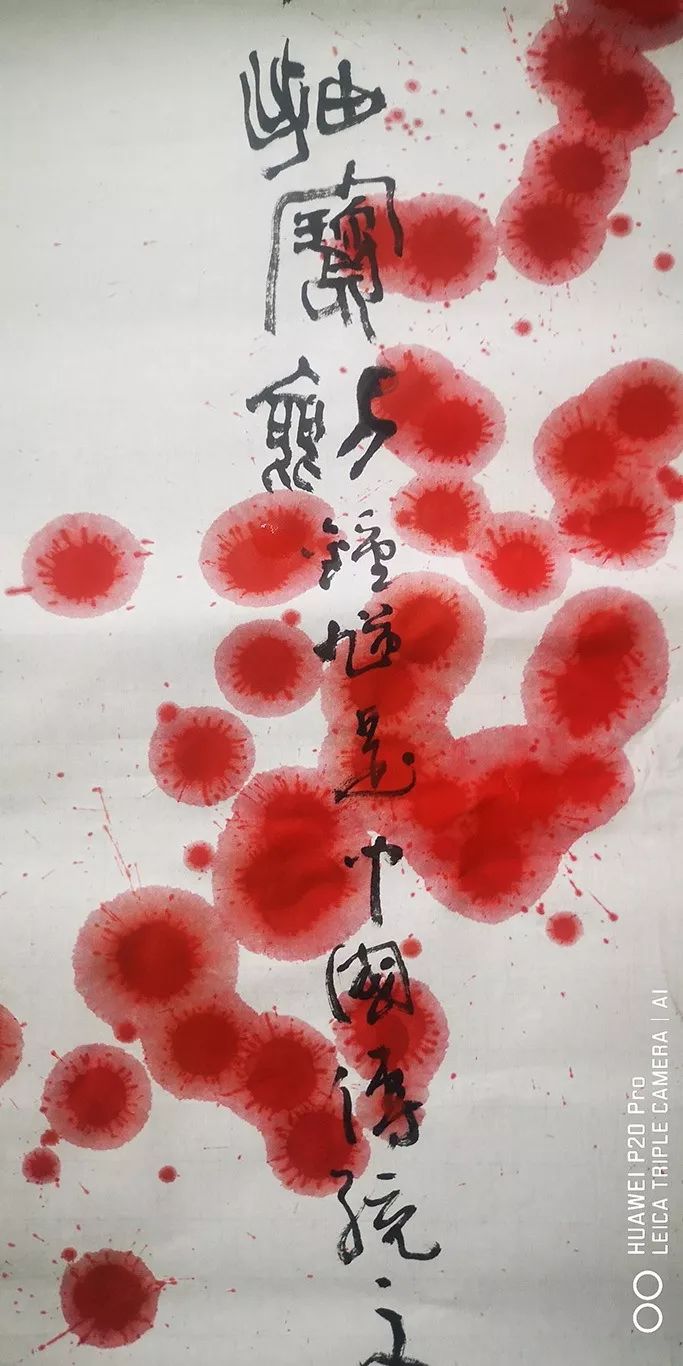 寶劍鍾馗是中國傳統文
HUAWEI P20 Pro
LEICA TRIPLE CAMERA | AI